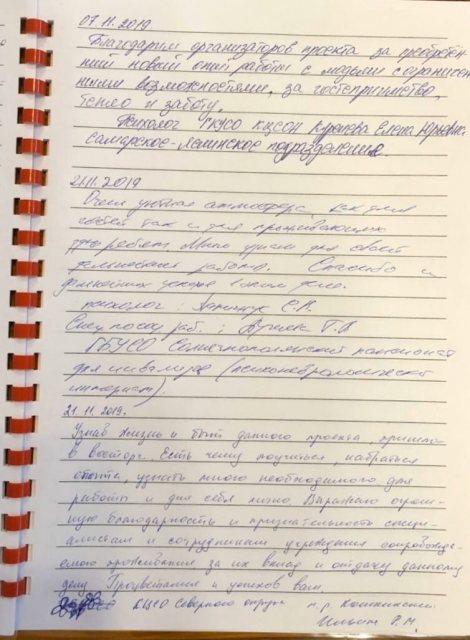 07.11.2019
Благодарим организаторов проекта за приобретен-
ный новый опыт работы с людьми с ограничен-
ными возможностями, за гостеприимство,
тепло и заботу.
Психолог ГКУСО КЦСОН Юрьевна
Самарское-Ленинское подразделение.
21.11.2019
Очень уютная атмосфера, как для
гостей так и для проживающих
ребят. Много для своей
работы. Спасибо и
психолог : С.Н.
Спец. по соц. раб. :
ГБУСО Солнечнополянский пансионат
для инвалидов (психоневрологический
интернат).
21.11.2019.
Узнав жизнь и быт данного проекта, пришла
в восторг. Есть чему поучиться, набраться
опыта, узнать много необходимого для
работы и для себя лично. Выражаю огром-
ную благодарность и признательность специ-
алистам и сотрудникам учреждения сопровожда-
емого проживания за их вклад и отдачу данному
делу. Процветания и успехов вам.
КЦСО Северного округа м.р. Кошкинский